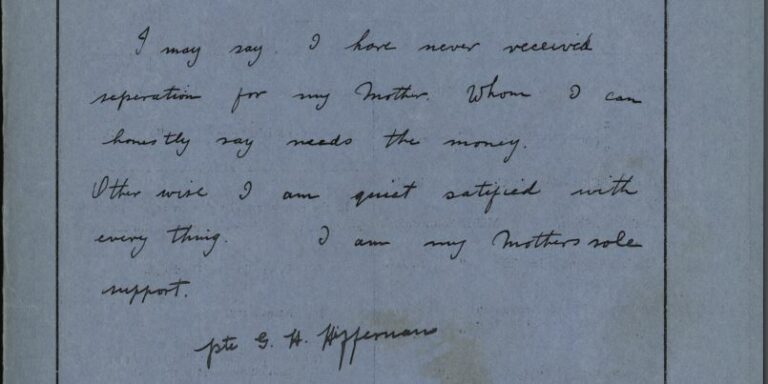 I may say. I have never received
seperation for my Mother. Whom I can
honestly say needs the money.
Other wise I am quiet satified with
every thing. I am my Mothers sole
support.
pte G. H. Heffernan